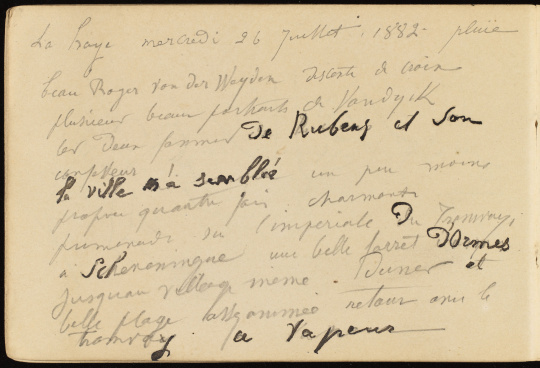 La haye mercredi 26 Juillet 1882 - pluie
beau Roger van der Weyden descente de croix
plusieur beaux portraits de Vandyck
les Deux femmes De Rubens et son
confesseur
la ville m'a semblée un peu moins
propre quant fois charmante
promenade sur l'impériale Du Tramway
a Scheveningue une belle forret D'Ormes
Jusquau village meme . Dunes et
belle plage retour avec le
tramway a vapeur